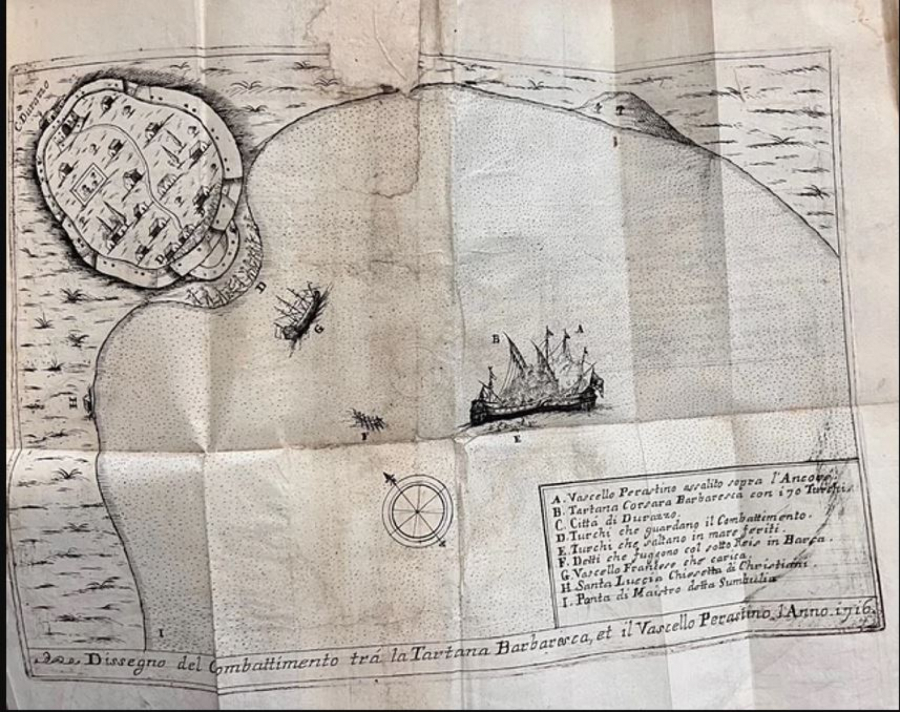 C. Durazzo
D
D
G
H
F
B
A
E
I
A. Vascello Perastino assalito sopra l'Ancore.
B. Tartana Corsara Barbaresca con 170 Turchi.
C. Città di Durazzo.
D. Turchi che guardano il Combattimento.
E. Turchi che saltano in mare feriti.
F. Detti che fuggono col sotto Reis in Barca.
G. Vascello Franzese che carica.
H. Santa Luccia Chiesetta di Christiani.
I. Ponta di Maistro detta
Dissegno del Combattimento trà la Tartana Barbaresca, et il Vascello Perastino, l'Anno. 1716.